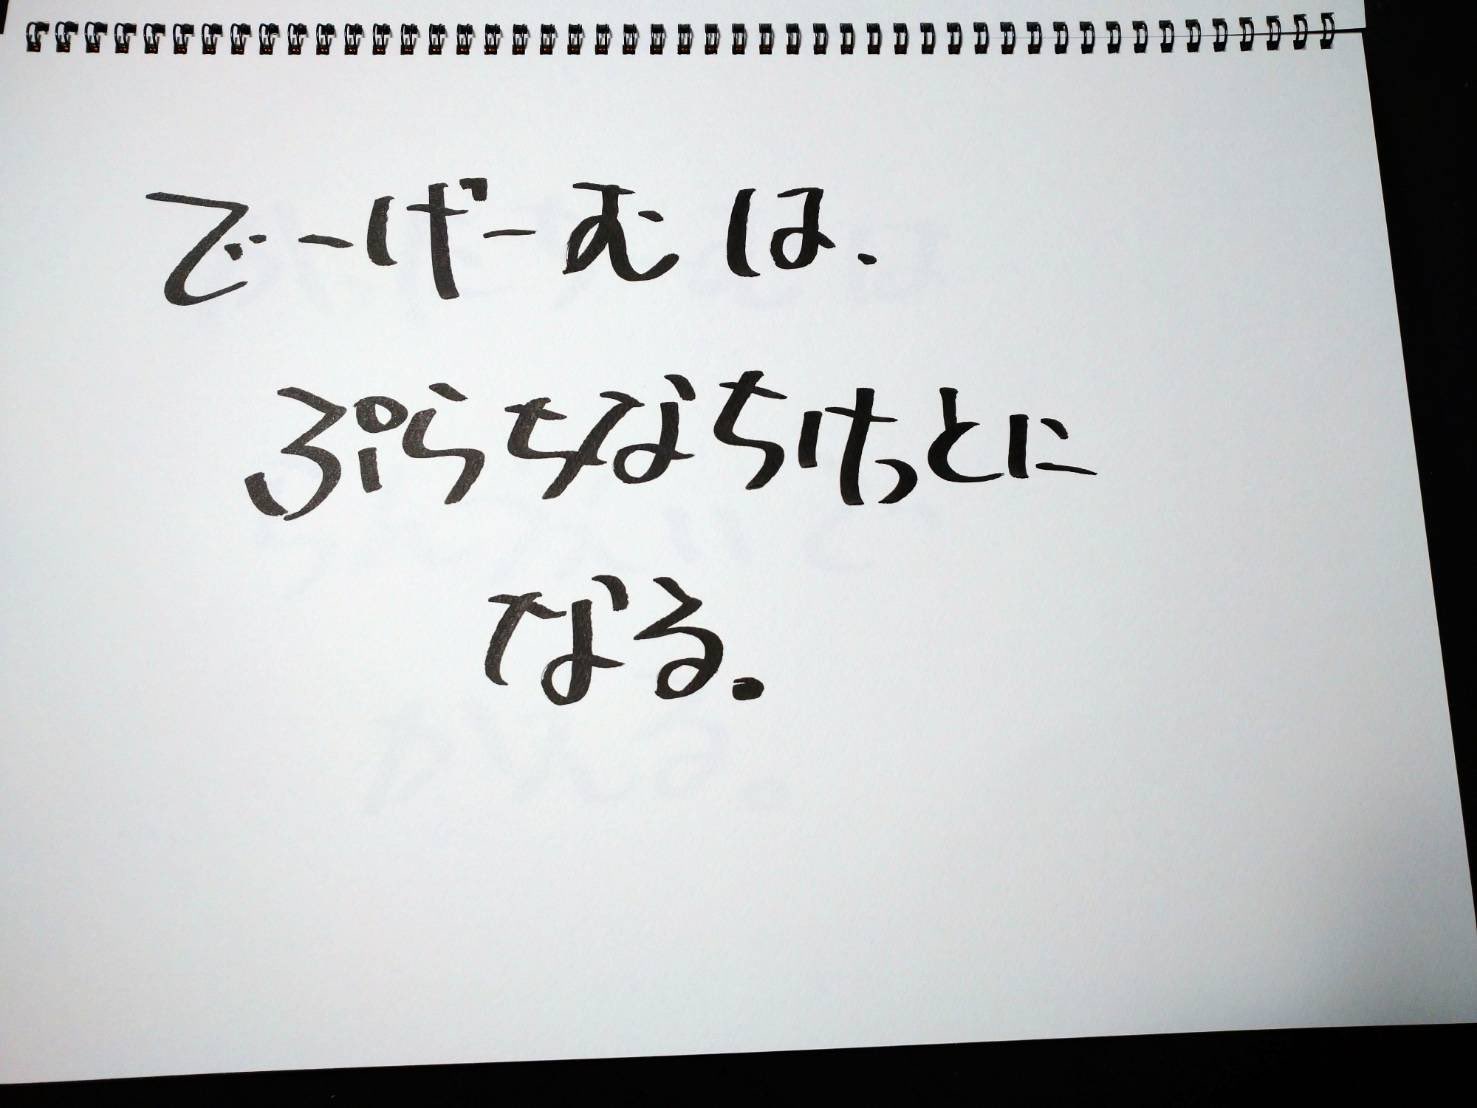 でーげーむは、
ぷらちなちけっとに
なる。